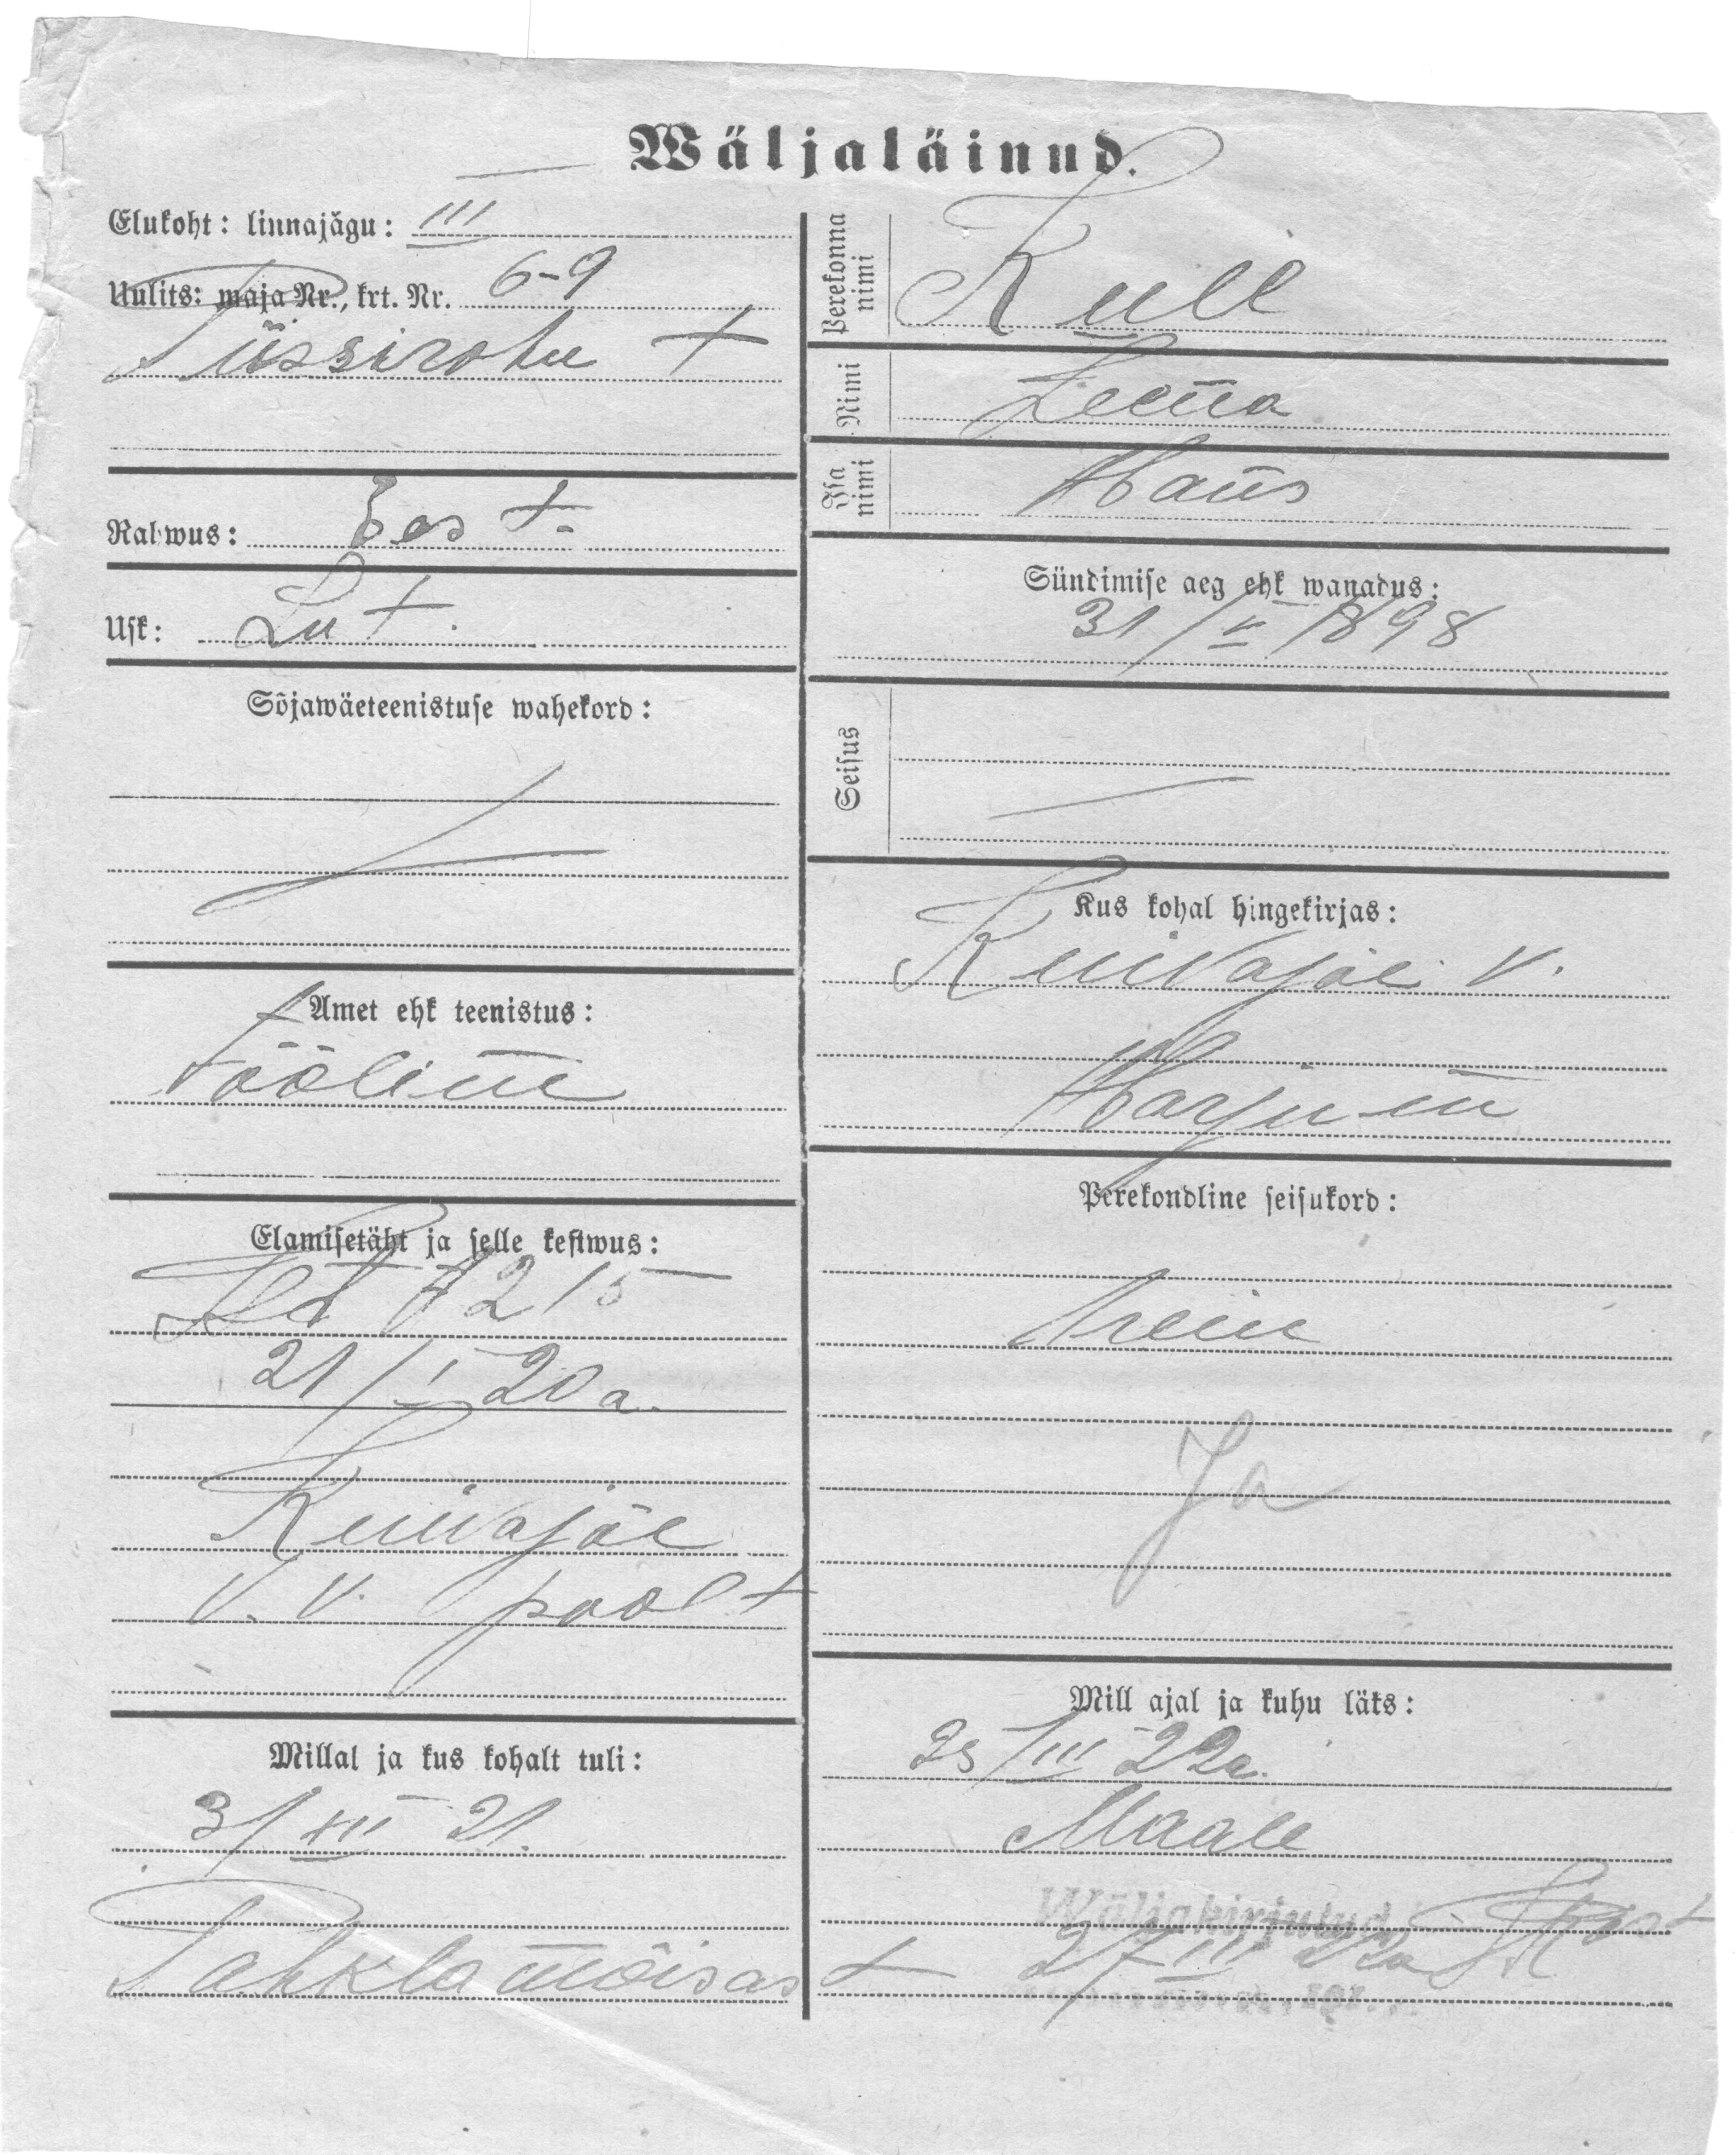 Wäljaläinud.
Elukoht: linnajägu: III
Uulits: maja Nr., krt. Nr. 6-9
Püssirohu t
Rahwus: Eest.
Usk: Lut.
Sõjawäeteenistuse wahekord:
Amet ehk teenistus:
Tööline
Elamisetäht ja selle kestwus:
1215
21/I 20 a.
Kuivajõe
V. V. poolt
Millal ja kus kohalt tuli:
31/XII 21.
Pahkla mõisast
Perekonna nimi
Kull
Nimi
Leena
Isa nimi
Hans
Sündimise aeg ehk wanadus:
31/V 1898
Seisus
Kus kohal hingekirjas:
Kuivajõe v.
Harju m
Perekondline seisukord:
Ja
Mill ajal ja kuhu läks:
25/III 22a.
Maale
Wäljakirjutud
27 III